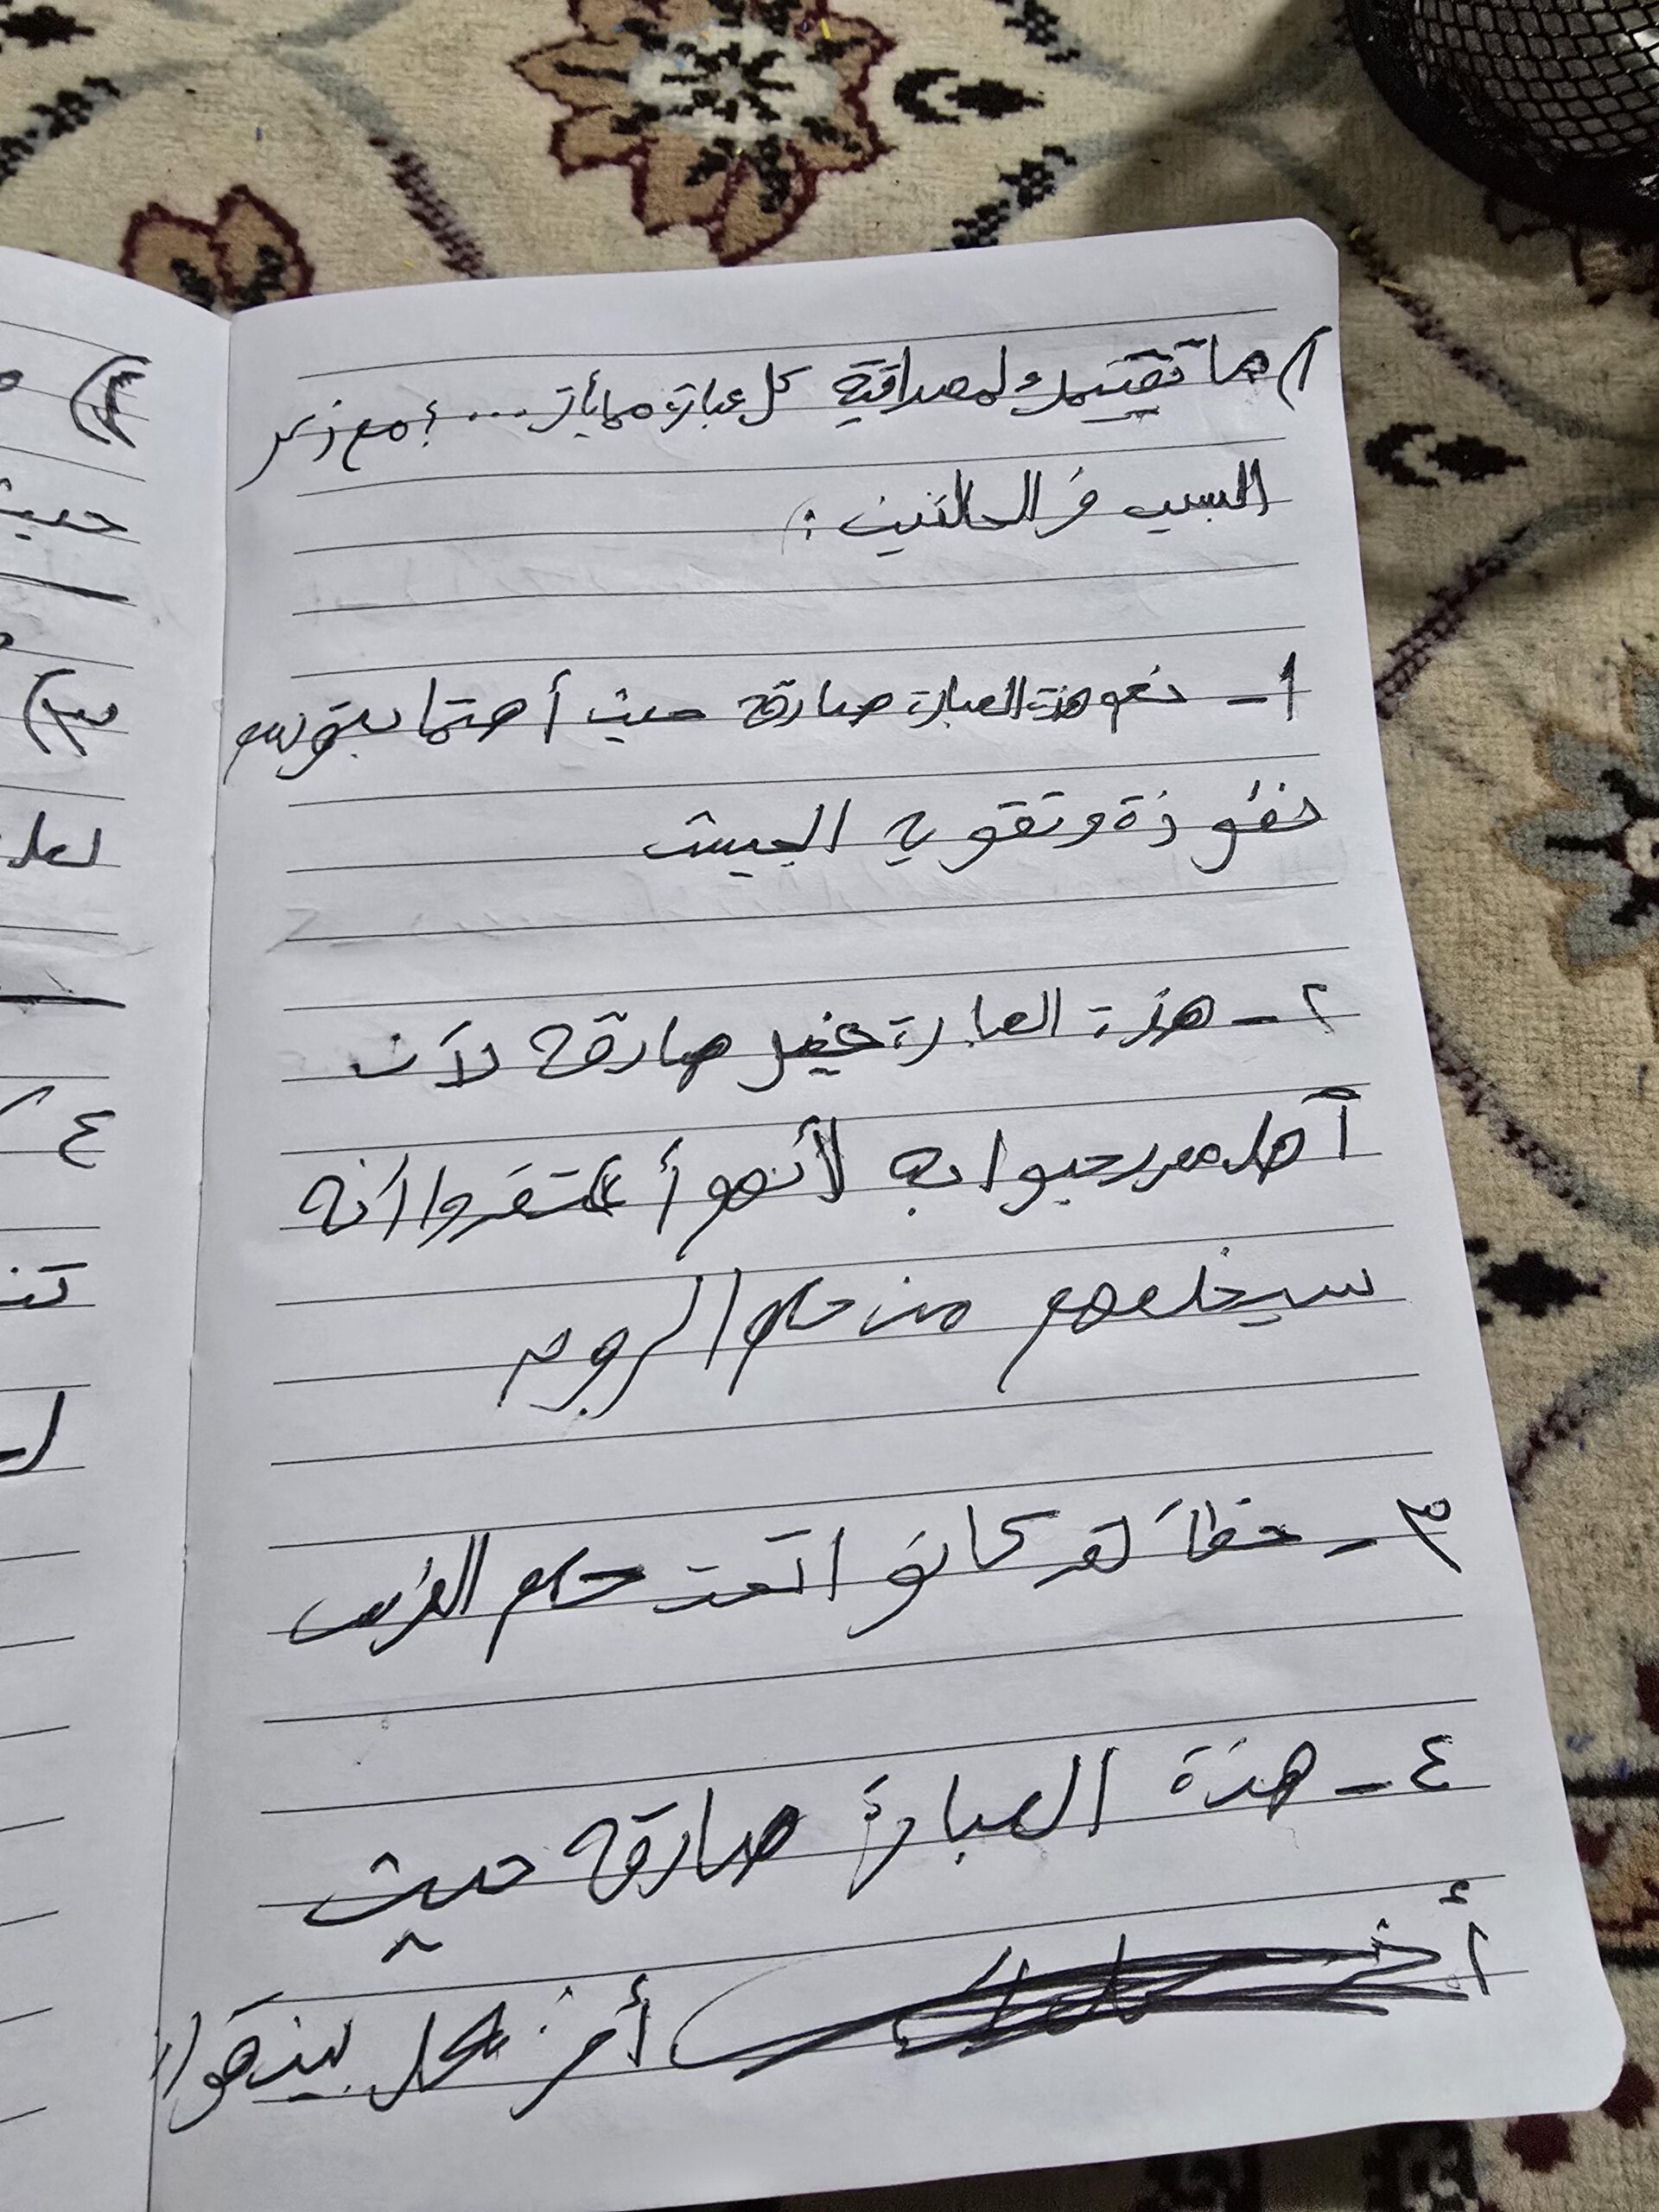 ١) ما تقييمك لمصداقية كل عبارة مما يأتي ... ؟ مع ذكر
السبب في الحالتين :
١ - نعم هذة العبارة صادقة حيث أهتما بتوسع
نفوذة وتقوية الجيش
٢ - هذة العبارة غير صادقة لأن
أهل مصر رحبوا به لأنهم أعتقدوا أنه
سيخلصهم من حكم الروم
٣ - خطأ لقد كانوا تحت حكم الفرس
٤ - هذة العبارة صادقة حيث
أخذ كل
٢)
حيث
٣)
٤